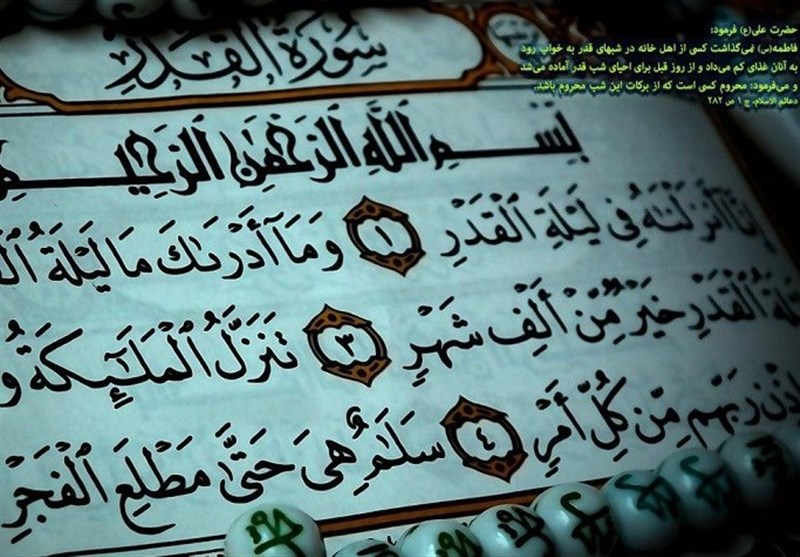 حضرت علی(ع) فرمود:
فاطمه(س) نمی‌گذاشت کسی از اهل خانه در شبهای قدر به خواب رود
به آنان غذای کم می‌داد و از روز قبل برای احیای شب قدر آماده می‌شد
و می‌فرمود: محروم کسی است که از برکات این شب محروم باشد.
دعائم الاسلام، ج ۱ ص ۲۸۲
سُورَةُ القَدْرِ
بِسْمِ ٱللَّهِ ٱلرَّحْمَٰنِ ٱلرَّحِيمِ
إِنَّآ أَنزَلْنَٰهُ فِى لَيْلَةِ ٱلْقَدْرِ ١ وَمَآ أَدْرَىٰكَ مَا لَيْلَةُ
ٱلْقَدْرِ خَيْرٌ مِّنْ أَلْفِ شَهْرٍ ٣ تَنَزَّلُ ٱلْمَلَٰٓئِكَةُ وَ
إِذْنِ رَبِّهِم مِّن كُلِّ أَمْرٍ ٤ سَلَٰمٌ هِىَ حَتَّىٰ مَطْلَعِ ٱلْفَجْرِ